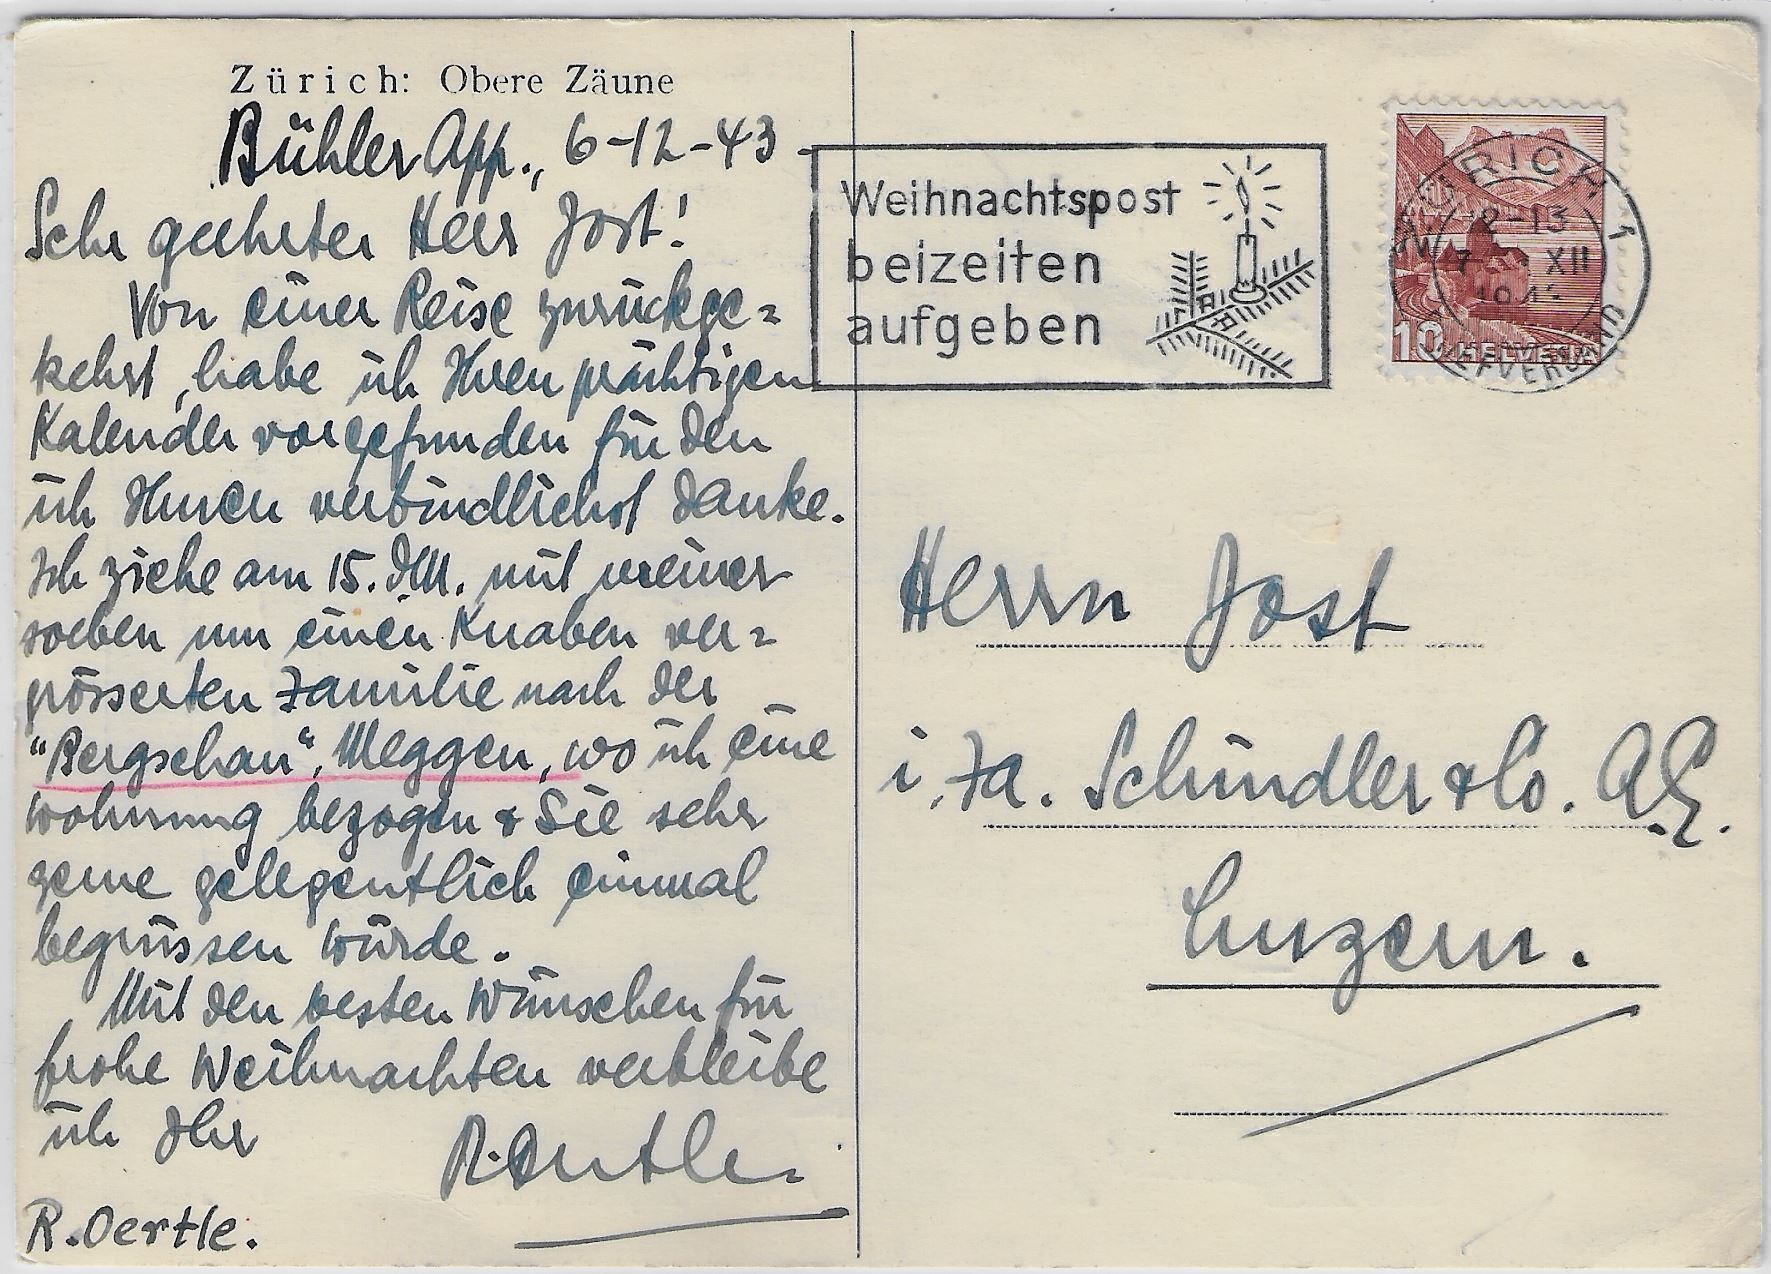 Zürich: Obere Zäune
Bühler App., 6-12-43
Sehr geehrter Herr Jost!
Von einer Reise zurückge=
kehrt, habe ich Ihren prächtigen
Kalender vorgefunden für den
ich Ihnen verbindlichst danke.
Ich ziehe am 15. XII. mit meiner
soeben um einen Knaben ver=
grösserten Familie nach der
"Bergschau", Meggen, wo ich eine
Wohnung bezogen & Sie sehr
gerne gelegentlich einmal
begrüssen würde.
Mit den besten Wünschen für
frohe Weihnachten verbleibe
ich Ihr
R. Oertle.
R. Oertle.
Weihnachtspost
beizeiten
aufgeben
ZÜRICH 1
7 XII
BRIEFVERSAND
10 HELVETIA
Herrn Jost
i. Fa. Schindler & Co. A.G.
Luzern.